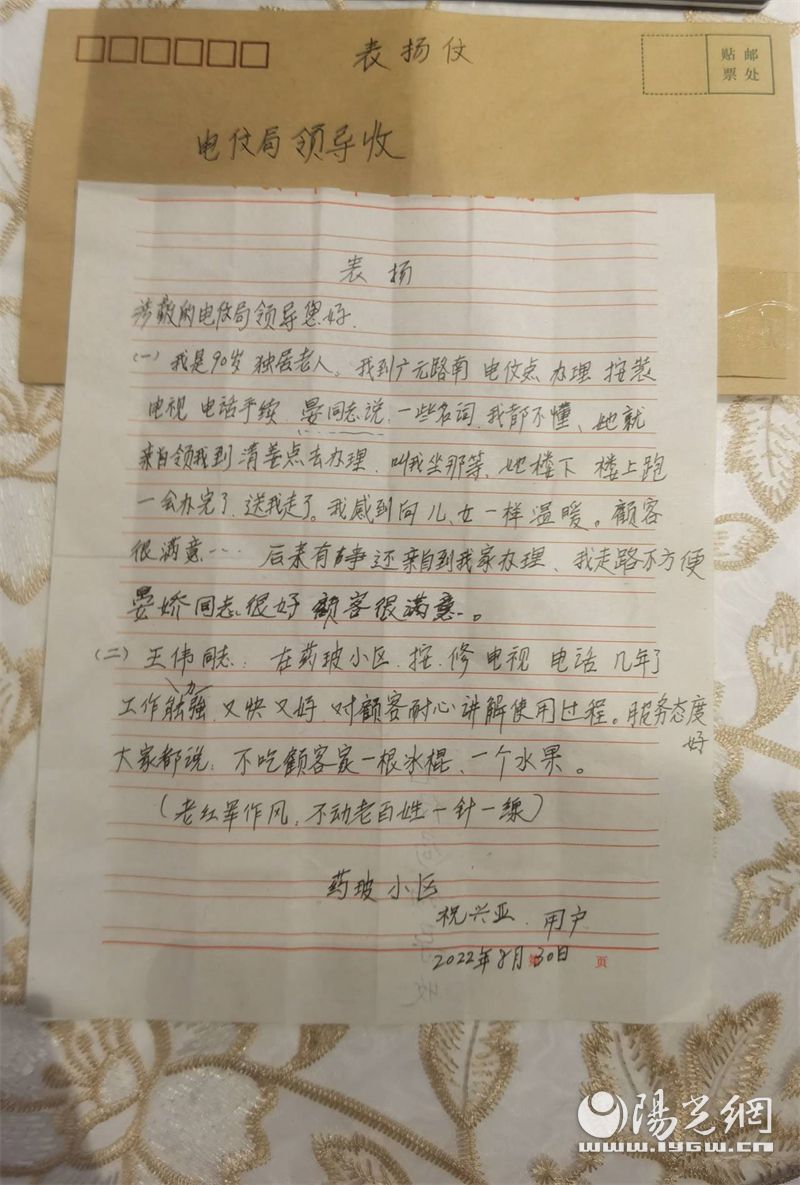 表扬伩
贴 邮
票 处
电伩局领导收
表扬
尊敬的电伩局领导您好.
(一) 我是90岁独居老人。我到广元路南 电伩点 办理 按装
电视 电话手续 晏同志说,一些名词,我都不懂、她就
亲自领我到清差点去办理,叫我坐那等、她楼下 楼上跑
一会办完了,送我走了。我感到向儿、女一样温暖。顾客
很满意… 后来有事还亲自到我家办理、我走路不方便
晏娇同志很好 顾客很满意。
(二) 王伟同志: 在药玻小区,按、修 电视 电话 几年了
工作能力强,又快又好,对顾客耐心讲解使用过程。服务态度好
大家都说: 不吃顾客家一根冰棍、一个水果。
(老红军作风,不动老百姓一针一線)
药玻小区
祝兴亚. 用户
2022年8月30日
第 页
陽光網
www.iygw.cn